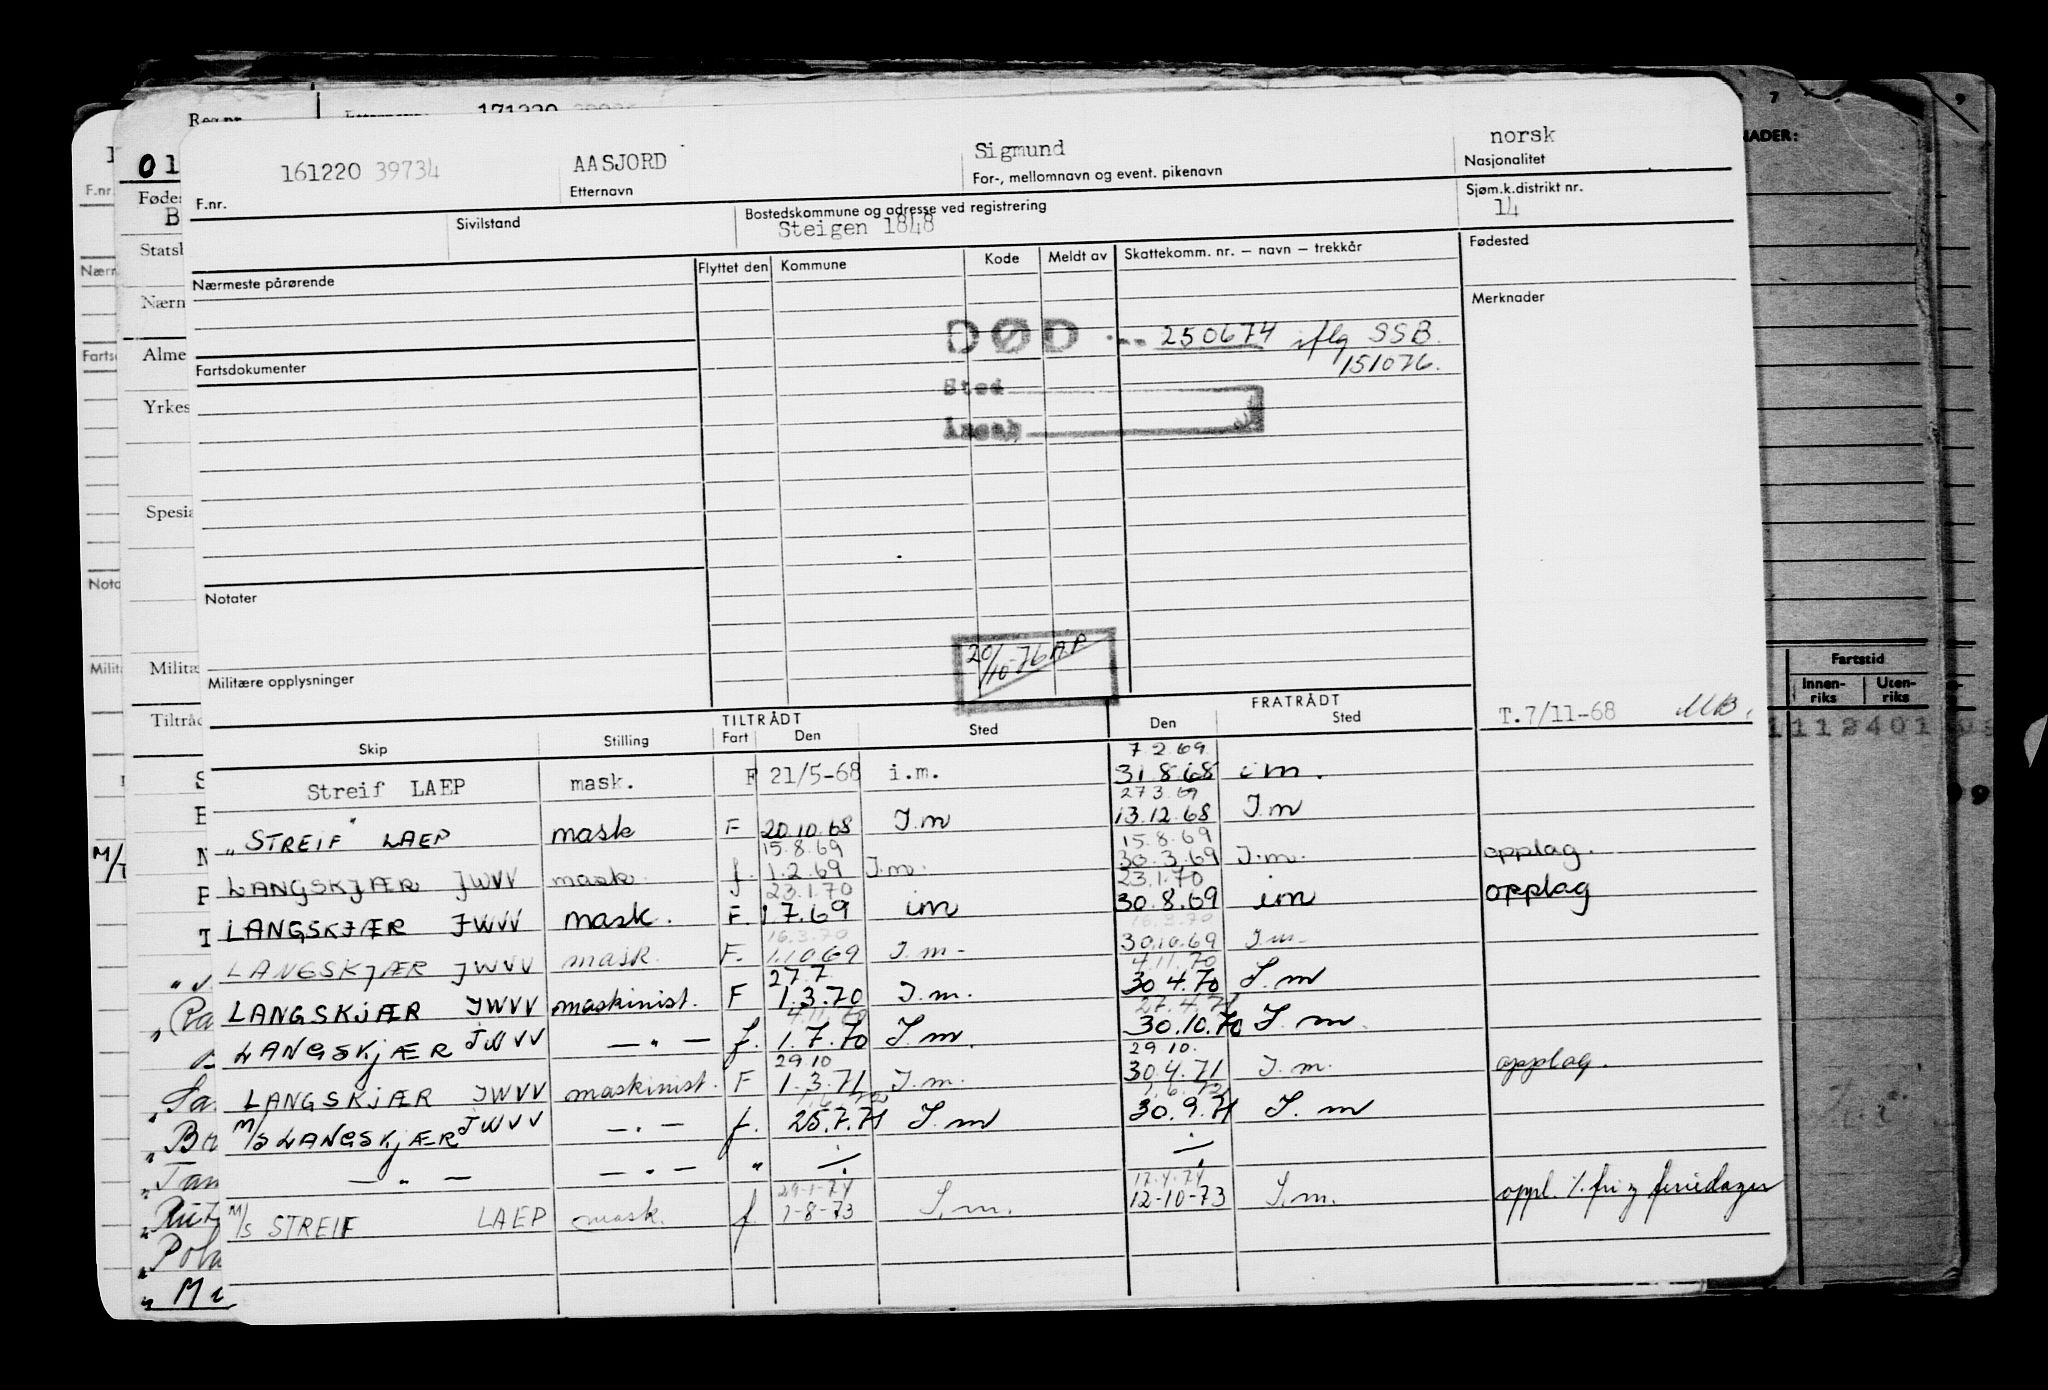 161220 39734 AASJORD Sigmund norsk
F.nr. Etternavn For-, mellomnavn og event. pikenavn Nasjonalitet
Sivilstand Bostedskommune og adresse ved registrering Sjøm.k.distrikt nr.
Steigen 1848 14
Nærmeste pårørende Flyttet den Kommune Kode Meldt av Skattekomm. nr. – navn – trekkår Fødested
Merknader
DØD 250674 iflg SSB.
151076.
Fartsdokumenter
Sted
Notater
20/10-76 AP
Militære opplysninger
TILTRÅDT FRATRÅDT
T.7/11-68 MB.
Skip Stilling Fart Den Sted Den Sted
7.2.69
Streif LAEP mask. F 21/5-68 i.m. 31.8.68 i m.
27 3.69
"STREIF" LAEP mask F 20.10.68 I.m 13.12.68 I.m
15.8.69 15.8.69
LANGSKJÆR JWVV mask. f. 1.2.69 I.m. 30.3.69 I.m. opplag.
23.1.70 23.1.70
LANGSKJÆR JWVV mask. F. 1 7.69 im 30.8.69 im opplag
16.3.70 16.3.70
LANGSKJÆR JWVV mask. F. 1.10.69 I.m. 30.10.69 I.m.
27.7. 4.11.70
LANGSKJÆR JWVV maskinist. F 1.3.70 I.m. 30.4.70 I.m
4.11.70 27.4.71
LANGSKJÆR JWVV — " — f. 1.7.70 I.m. 30.10.70 I.m.
29.10 29 10.
LANGSKJÆR JWVV maskinist. F 1.3.71 I.m. 30.4.71 I.m. opplag.
M/S LANGSKJÆR JWVV — " — f. 25.7.71 I.m 30.9.71 I.m
— " — — " — " ÷ ÷
29-1-74 17.4.74
M/S STREIF LAEP mask. f. 1-8-73 I.m. 12-10-73 I.m. oppl.
Reg.nr.
171220
F.nr.
01
Statsb
Nærm
Alme
Yrkes
Spesia
Nota
Milita
Tiltråd
NADER:
Fartstid
Innen-riks Uten-riks
112401